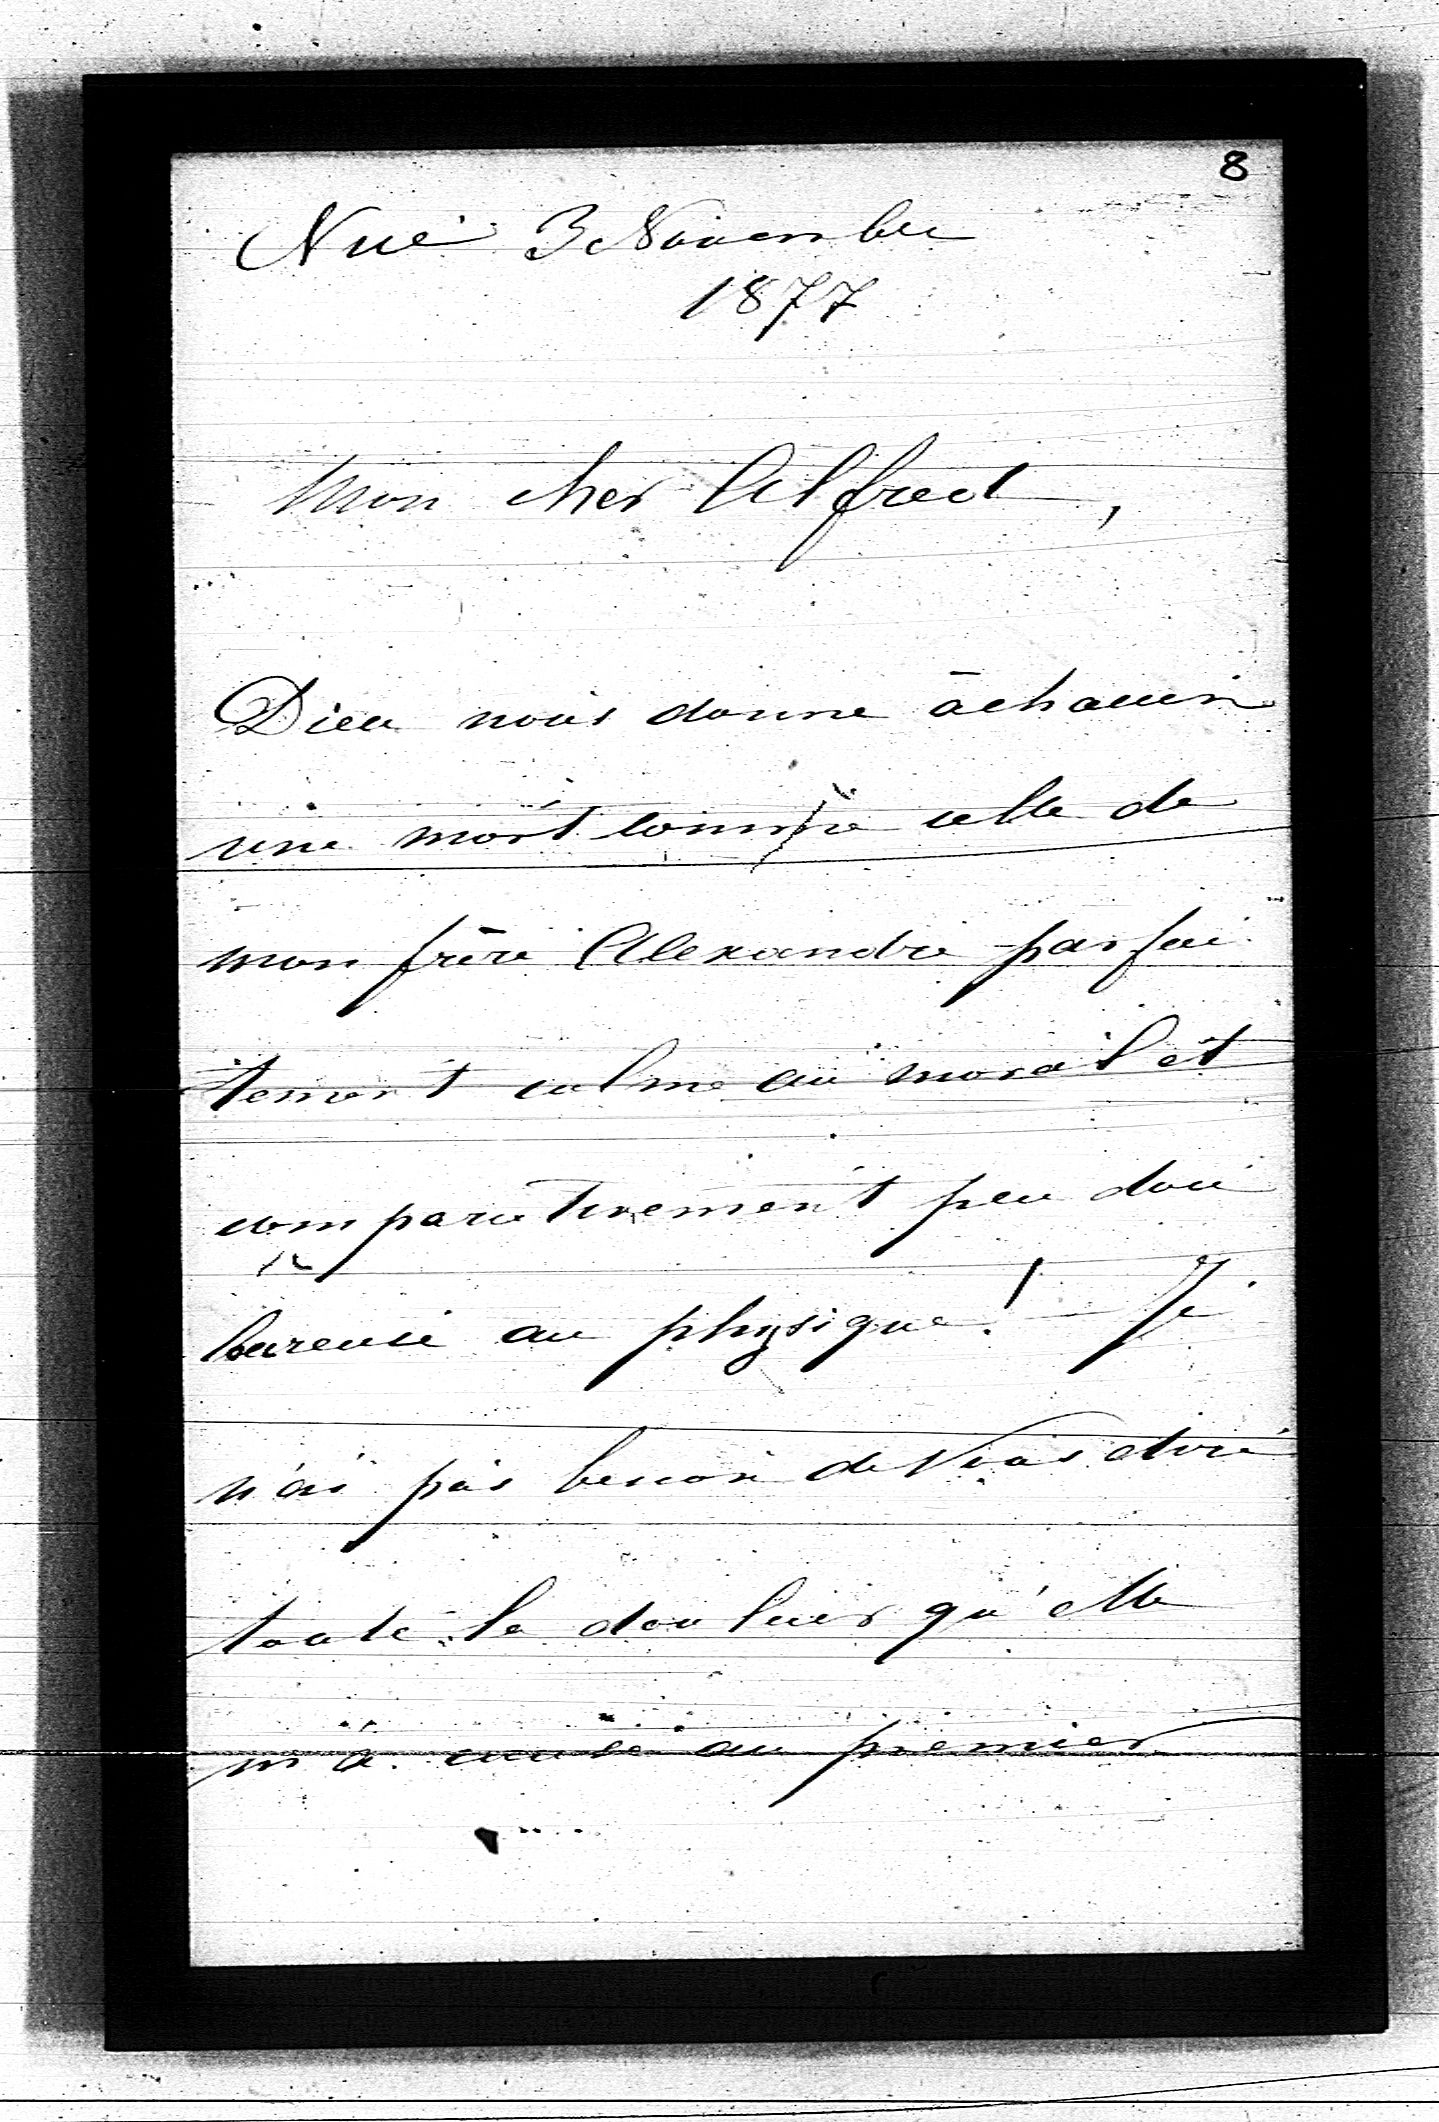 8
Nice 3 Novembre
1877
Mon cher Alfred,
Dieu nous donne à chacun
une mort comme celle de
mon frère Alexandre parfai
tement calme au moral et
comparativement peu dou
loureuse au physique! Je
n'ai pas besoin de vous dire
toute la douleur qu'elle
m'a causée au premier